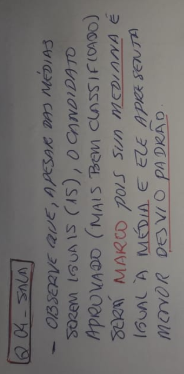 Q 04 - SALA
- OBSERVE QUE, APESAR DAS MÉDIAS
SEREM IGUAIS (15), O CANDIDATO
APROVADO (MAIS BEM CLASSIFICADO)
SERÁ MARCO POIS SUA MEDIANA É
IGUAL À MÉDIA E ELE APRESENTA
MENOR DESVIO PADRÃO.